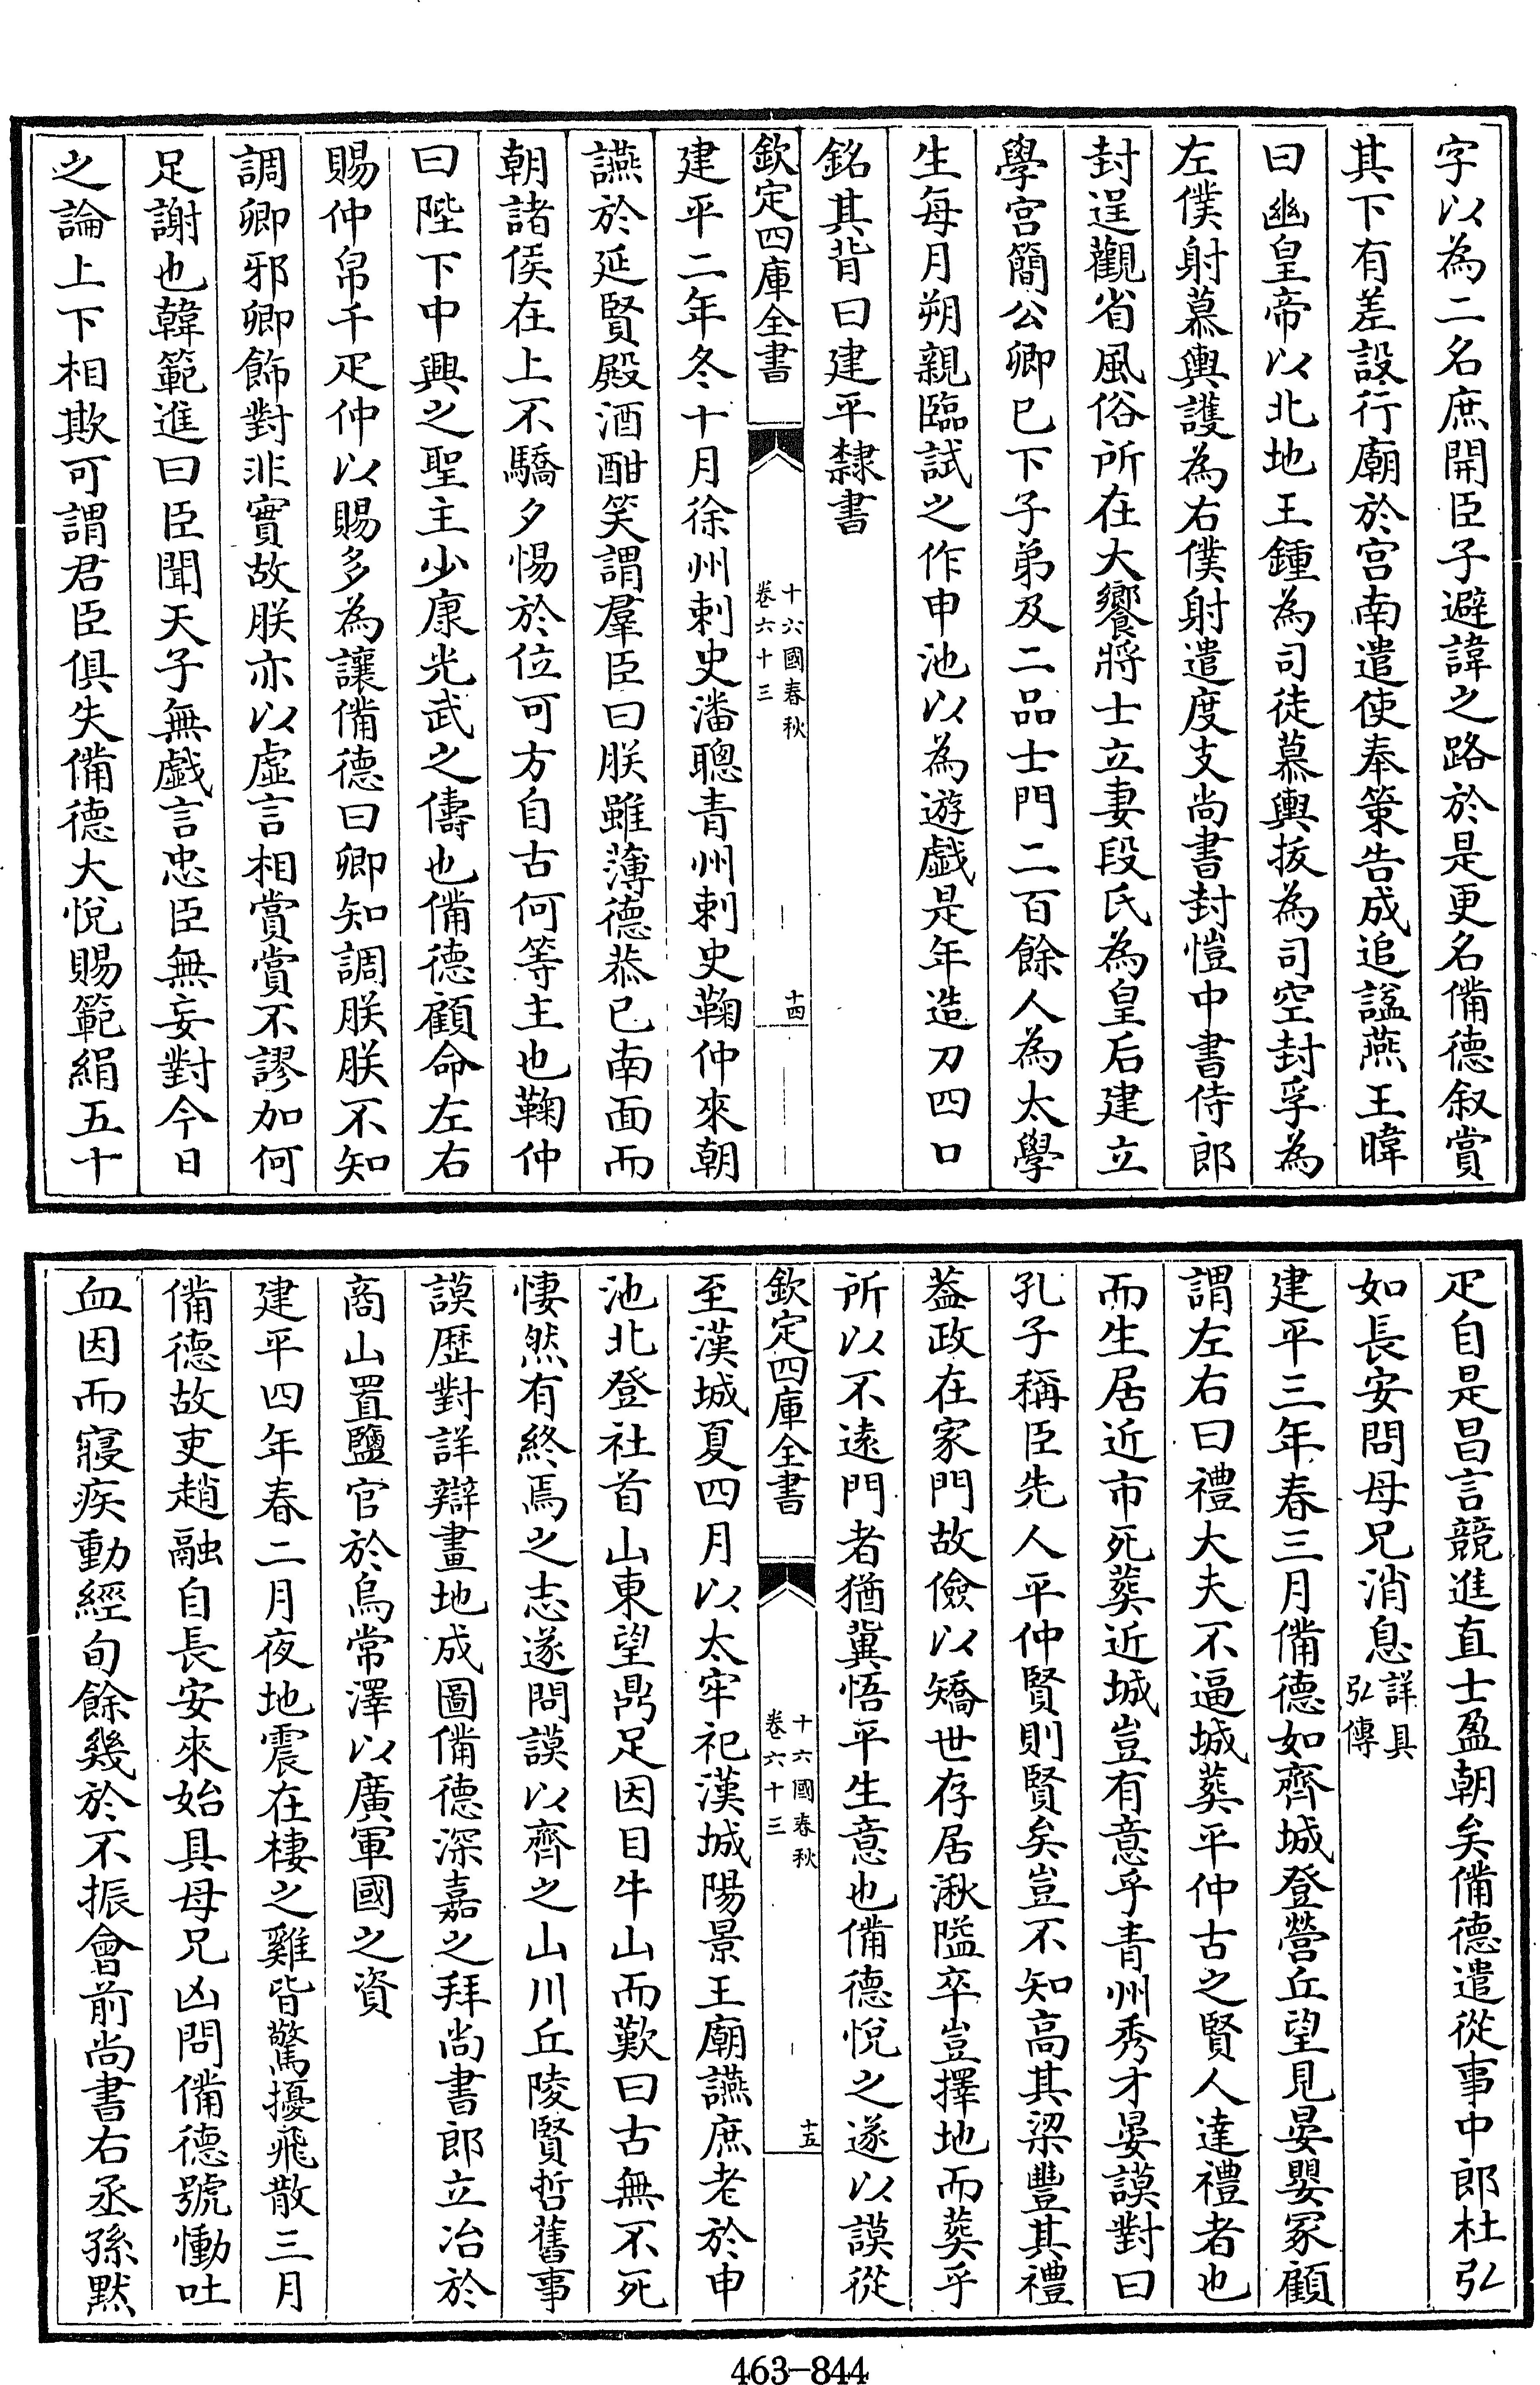 字以為二名庶開臣子避諱之路於是更名備德叙賞
其下有差設行廟於宫南遣使奉策告成追諡燕王暐
曰幽皇帝以北地王鍾為司徒慕輿拔為司空封孚為
左僕射慕輿護為右僕射遣度支尚書封愷中書侍郎
封逞觀省風俗所在大饗將士立妻段氏為皇后建立
學宫簡公卿已下子弟及二品士門二百餘人為太學
生每月朔親臨試之作申池以為遊戲是年造刀四口
銘其背曰建平隸書
欽定四庫全書
十六國春秋
卷六十三
十四
建平二年冬十月徐州刺史潘聰青州刺史鞠仲來朝
讌於延賢殿酒酣笑謂羣臣曰朕雖薄德恭已南面而
朝諸侯在上不驕夕惕於位可方自古何等主也鞠仲
曰陛下中興之聖主少康光武之儔也備德顧命左右
賜仲帛千疋仲以賜多為讓備德曰卿知調朕朕不知
調卿邪卿飾對非實故朕亦以虛言相賞賞不謬加何
足謝也韓範進曰臣聞天子無戲言忠臣無妄對今日
之論上下相欺可謂君臣俱失備德大悅賜範絹五十
疋自是昌言競進直士盈朝矣備德遣從事中郎杜弘
如長安問母兄消息詳具弘傳
建平三年春三月備德如齊城登營丘望見晏嬰冢顧
謂左右曰禮大夫不逼城葬平仲古之賢人達禮者也
而生居近市死葬近城豈有意乎青州秀才晏謨對曰
孔子稱臣先人平仲賢則賢矣豈不知高其梁豐其禮
葢政在家門故儉以矯世存居湫隘卒豈擇地而葬乎
所以不遠門者猶冀悟平生意也備德悅之遂以謨從
欽定四庫全書
十六國春秋
卷六十三
十五
至漢城夏四月以太牢祀漢城陽景王廟讌庶老於申
池北登社首山東望鼎足因目牛山而歎曰古無不死
悽然有終焉之志遂問謨以齊之山川丘陵賢哲舊事
謨歷對詳辯畫地成圖備德深嘉之拜尚書郎立冶於
商山置鹽官於烏常澤以廣軍國之資
建平四年春二月夜地震在棲之雞皆驚擾飛散三月
備德故吏趙融自長安來始具母兄凶問備德號慟吐
血因而寢疾動經旬餘幾於不振會前尚書右丞孫默
463-844